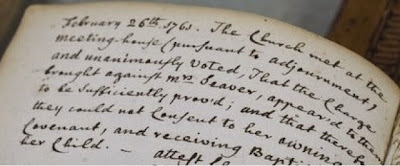 February 26th 1763. The Church met at the
meeting-house (pursuant to adjournment)
and unanimously Voted, That the Charge
brought against Mrs Seaver, appear'd to them
to be Sufficiently prov'd; and that therefore
they could not Consent to her owning
Covenant, and receiving Bapt
her Child. — attest